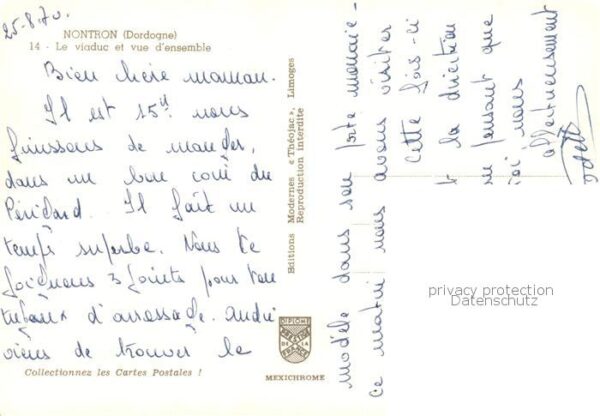 25-8-70.
NONTRON (Dordogne)
14 - Le viaduc et vue d'ensemble
Bien chère maman.
Il est 15h nous
finissons de manger,
dans un bon coin du
Périgord. Il fait un
temps superbe. Nous te
joignons 3 joints pour ton
tuyaux d'arrosage. André
viens de trouver le
modèle dans son porte monnaie -
ce matin nous avons visiter
Cette fois-ci
la direction
en pensant que
ici nous
affectueusement
Odette
Editions Modernes « Théojac », Limoges
Reproduction interdite
DIPLOME
PRESTIGE
DE LA
FRANCE
MEXICHROME
Collectionnez les Cartes Postales !
privacy protection
Datenschutz